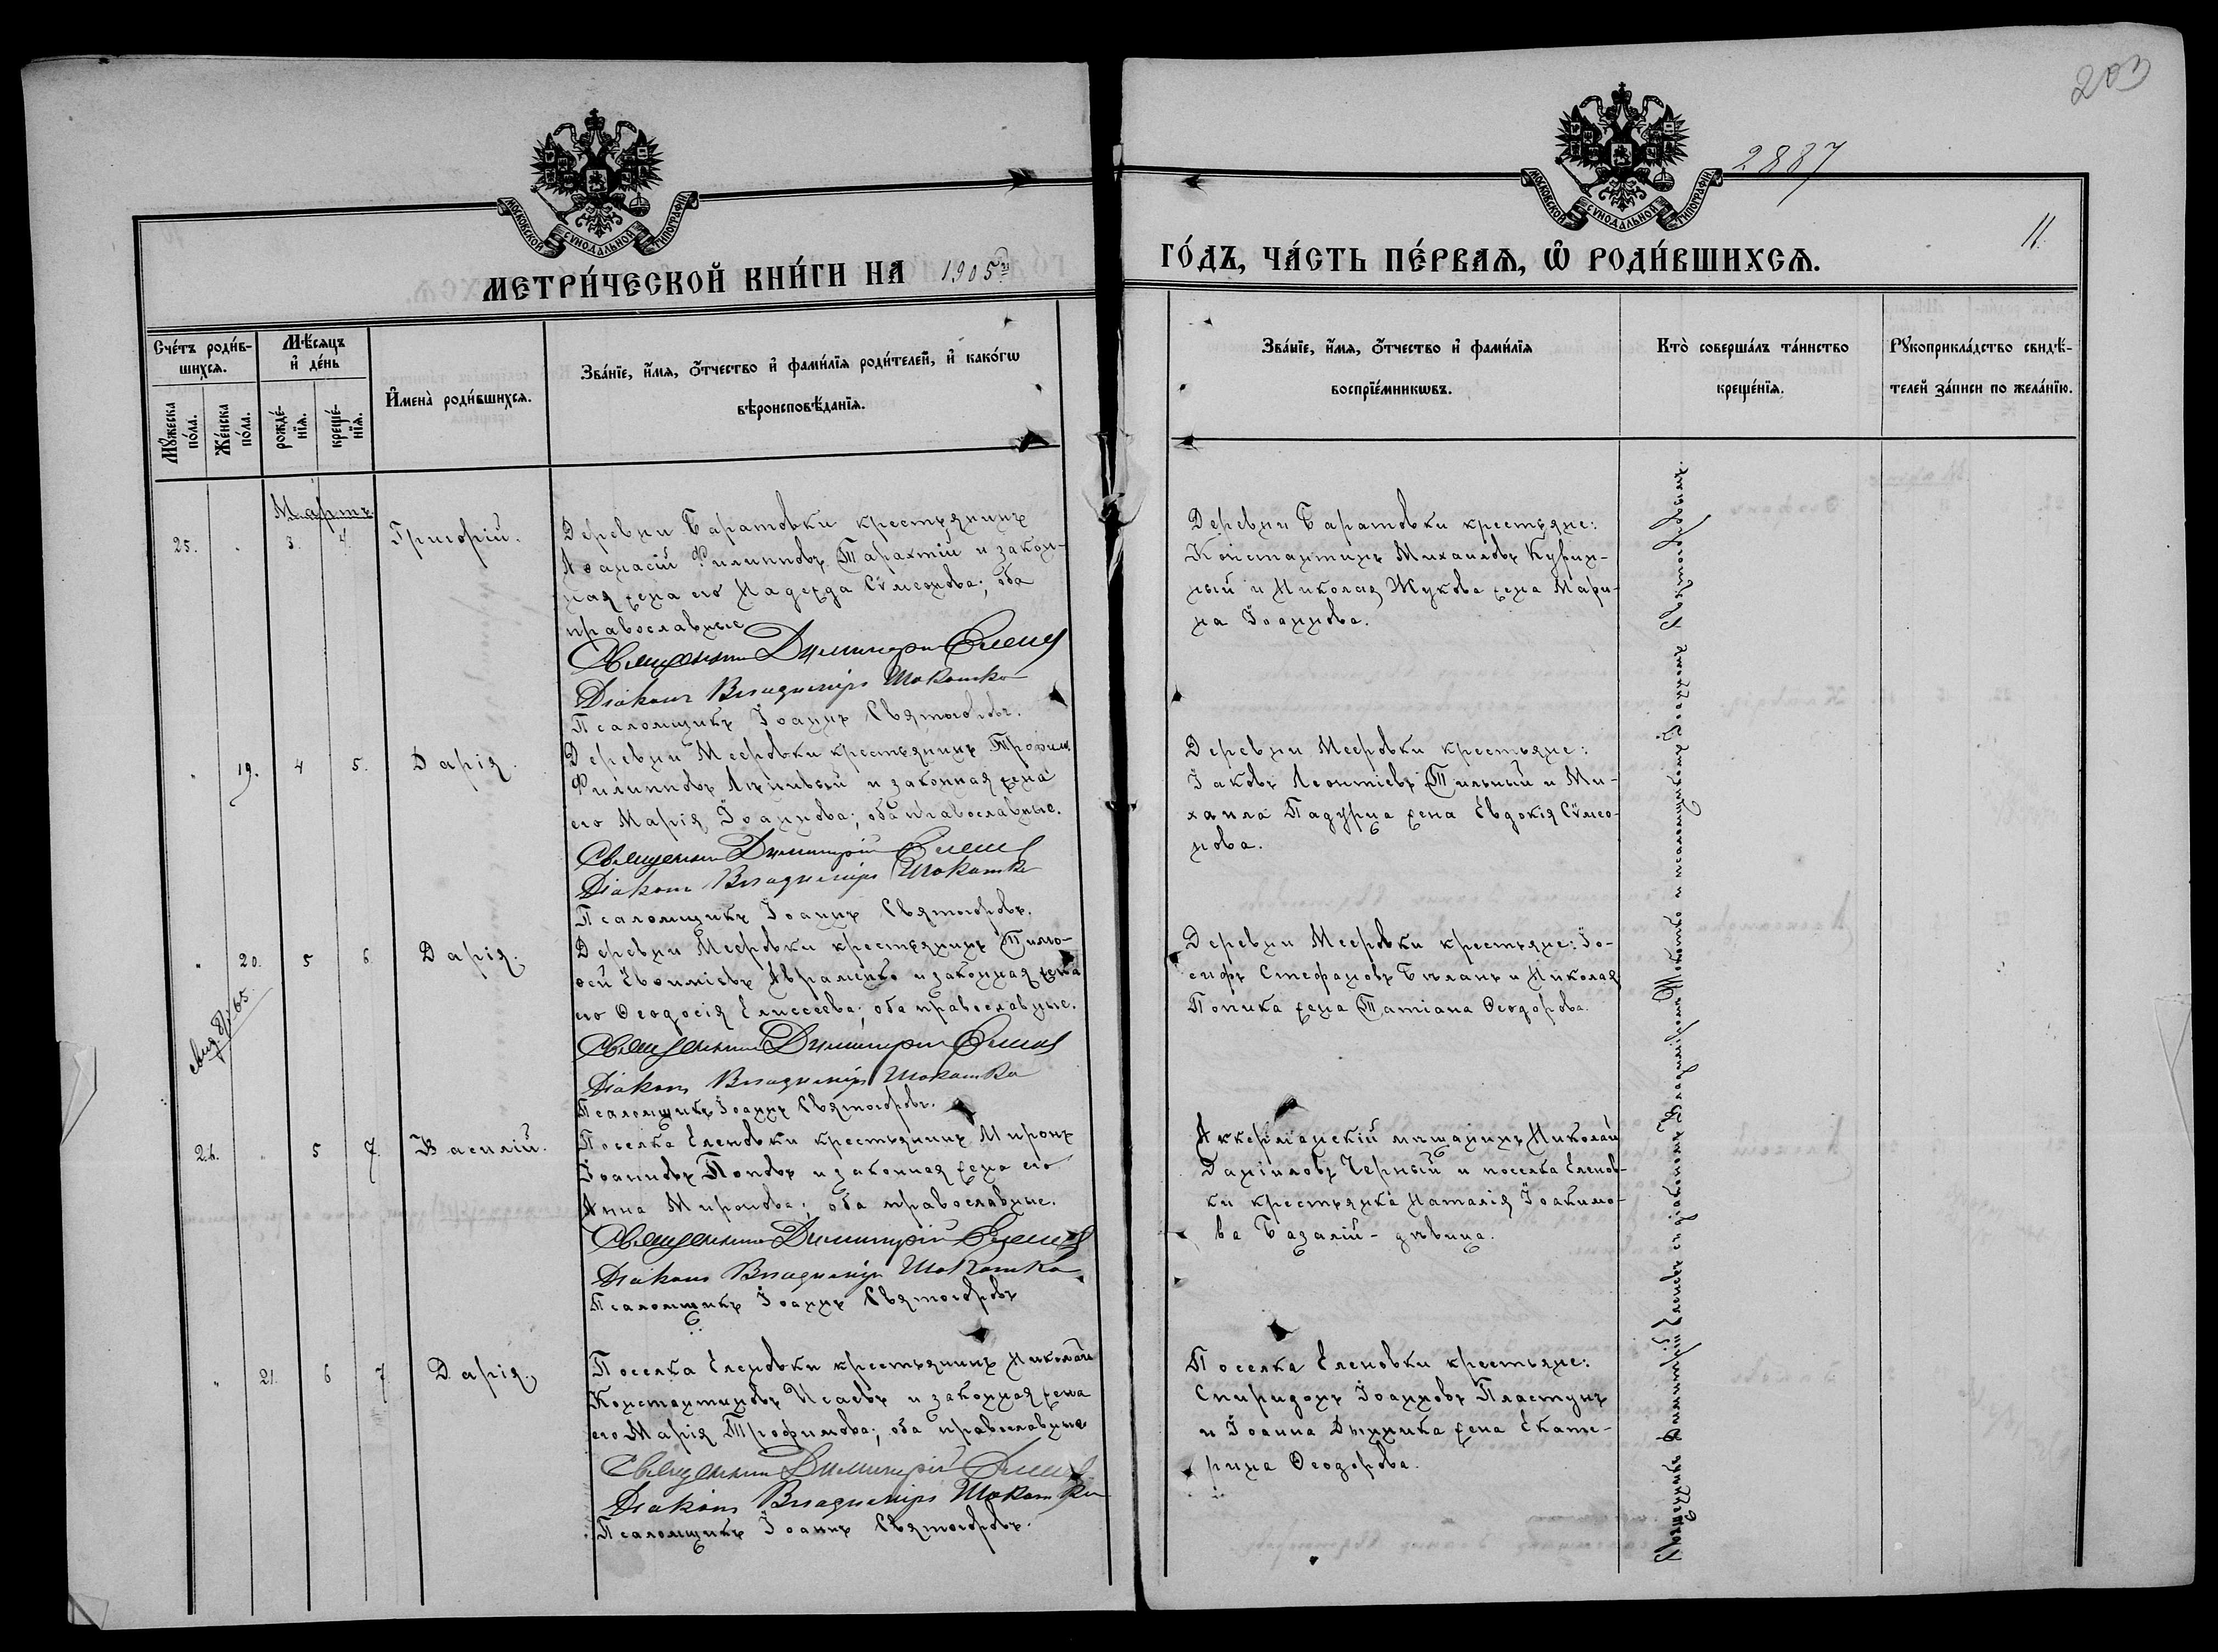 203
2887
11.
МОСКОВСКОЙ СѴНОДАЛЬНОЙ ТИПОГРАФІИ
МОСКОВСКОЙ СѴНОДАЛЬНОЙ ТИПОГРАФІИ
МЕТРИ́ЧЕСКОЙ КНИ́ГИ НА 1905й
ГО́ДЪ, ЧА́СТЬ ПЕ́РВАѦ, Ѡ҆ РОДИ́ВШИХСѦ.
Сче́тъ роди́в-
шихсѧ.
Мѣ́сѧцъ
и҆ де́нь
Мꙋ́жеска
по́ла.
Же́нска
по́ла.
рожде́-
нїѧ.
креще́-
нїѧ.
И҆мена̀ роди́вшихсѧ.
Зва́нїе, и҆́мѧ, ѻ҆́тчество и҆ фами́лїѧ роди́телей, и҆ како́гѡ
вѣроисповѣ́данїѧ.
Зва́нїе, и҆́мѧ, ѻ҆́тчество и҆ фами́лїѧ
воспрїе́мникѡвъ.
Кто̀ соверша́лъ та́инство
креще́нїѧ.
Рꙋкоприкла́дство свидѣ́-
телей за́писи по жела́нїю.
Мартъ
25. " 3. 4. Григорій.
Деревни Баратовки крестьянинъ
Аѳанасій Филипповъ Тарахтій и закон-
ная жена его Надежда Сѵмеонова; оба
православные
Священникъ Димитрій Еленевъ
Діаконъ Владиміръ Шокотко
Псаломщикъ Іоаннъ Святогоровъ.
Деревни Баратовки крестьяне:
Константинъ Михаиловъ Курин-
ный и Николая Жукова жена Мари-
на Іоаннова.
" 19. 4 5. Дарія.
Деревни Мееровки крестьянинъ Трофим.
Филипповъ Лѣнивый и законная жена
его Марія Іоаннова; оба православные.
Священникъ Димитрій Еленевъ
Діаконъ Владиміръ Шокотко
Псаломщикъ Іоаннъ Святогоровъ.
Деревни Мееровки крестьяне:
Іаковъ Леонтіевъ Тильный и Ми-
хаила Падурца жена Евдокія Сѵмео-
нова.
" 20. 5 6 Дарія.
Деревни Мееровки крестьянинъ Тимо-
ѳей Евѳиміевъ Авраменко и законная жена
его Ѳеодосія Елисеева; оба православные.
Священникъ Димитрій Еленевъ
Діаконъ Владиміръ Шокотко
Псаломщикъ Іоаннъ Святогоровъ.
Деревни Мееровки крестьяне: Іо-
сифъ Стефановъ Бѣланъ и Николая
Попика жена Татіана Ѳеодорова.
26. " 5 7. Василій.
Поселка Еленовки крестьянинъ Миронъ
Іоанновъ Поповъ и законная жена его
Анна Миронова; оба православные.
Священникъ Димитрій Еленевъ
Діаконъ Владиміръ Шокотко
Псаломщикъ Іоаннъ Святогоровъ
Аккерманскій мѣщанинъ Николай
Даніиловъ Черный и поселка Еленов-
ки крестьянка Наталія Іоакимо-
ва Базалій - дѣвица.
" 21. 6 7 Дарія.
Поселка Еленовки крестьянинъ Николай
Константиновъ Исаевъ и законная жена
его Марія Трофимова; оба православные
Священникъ Димитрій Еленевъ
Діаконъ Владиміръ Шокотко
Псаломщикъ Іоаннъ Святогоровъ.
Поселка Еленовки крестьяне:
Спиридонъ Іоанновъ Пластунъ
и Іоанна Дынника жена Екате-
рина Ѳеодорова.
Священникъ Димитрій Еленевъ съ діакономъ Владиміромъ Шокотко и псаломщикомъ Іоанномъ Святогоровымъ.